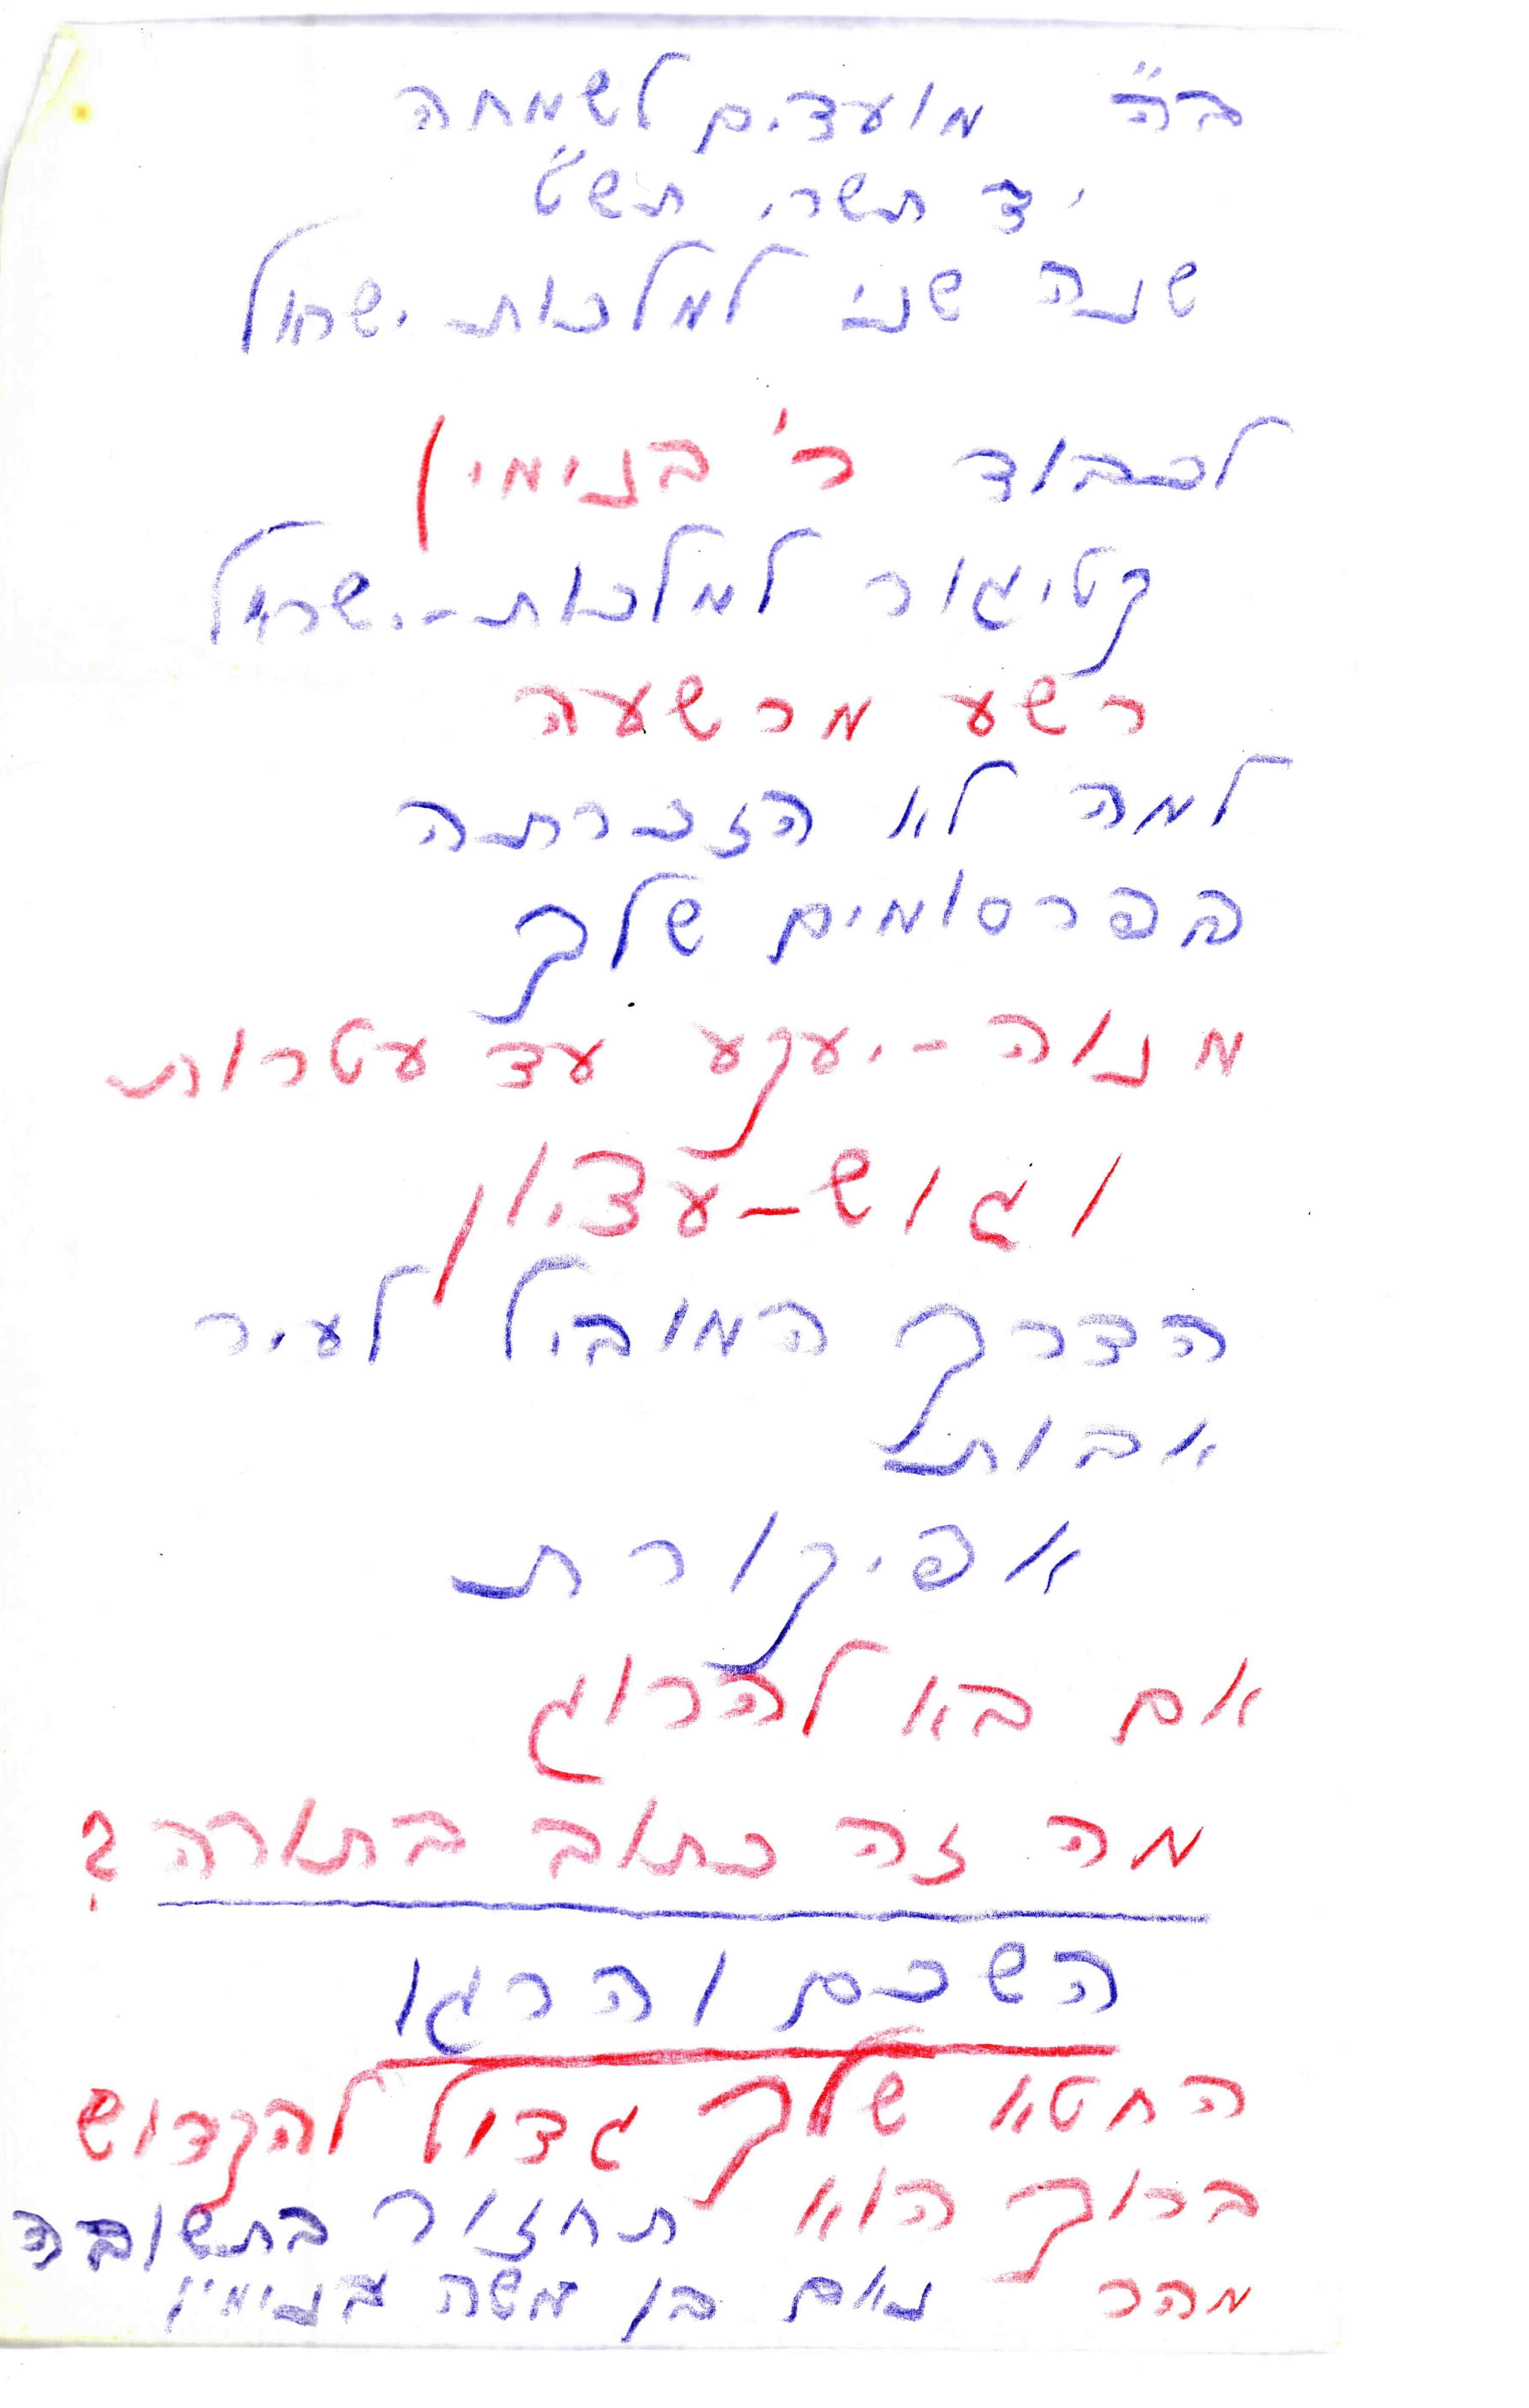 ב"ה מועדים לשמחה
יד תשרי תש"ט
שנה שני למלכות-ישראל
לכבוד ר' בנימין
קטיגור למלכות-ישראל
רשע מרשעה
למה לא הזכרתה
הפרסומים שלך
מנוה-יעקע עד עטרות
וגוש-עציון
הדרך המוביל לעיר
אבותך
אפיקורת
אם בא להרוג
מה זה כתוב בתורה?
השכם והרגו
החטא שלך גדול להקדוש
ברוך הוא תחזור בתשובה
מהר נאם בן משה בנימין